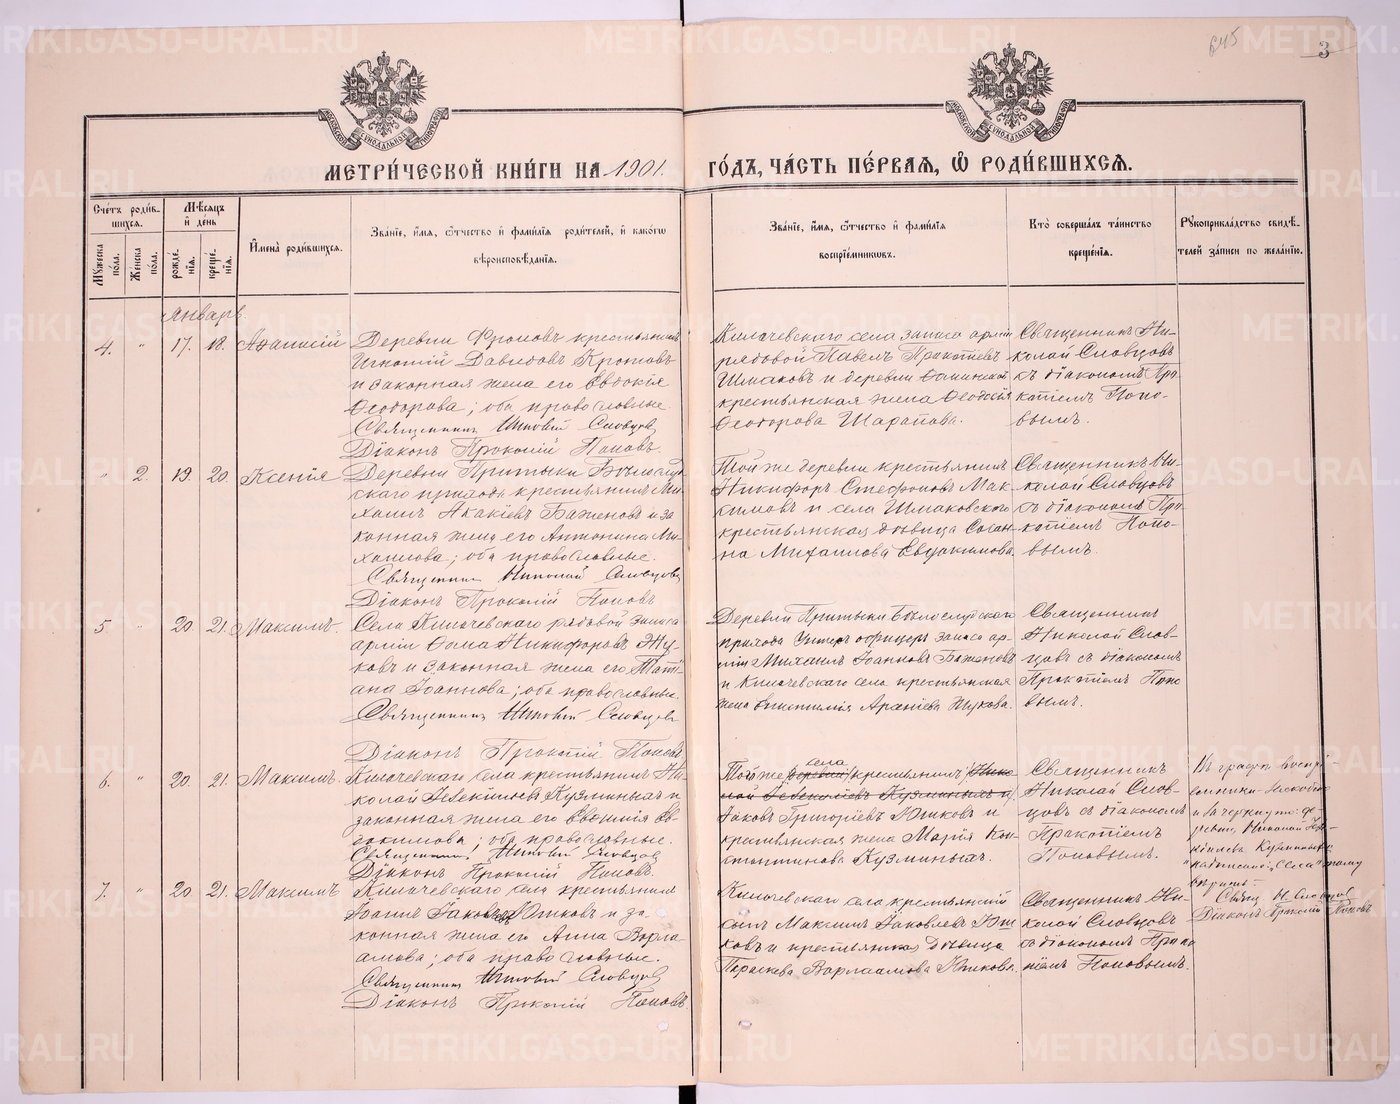 645
3
МЕТРИ́ЧЕСКОЙ КНИ́ГИ НА 1901. ГО́ДЪ, ЧА́СТЬ ПЕ́РВАЯ, Ѡ РОДИ́ВШИХСЯ.
Сче́тъ роди́в-
шихся.
Мꙋ́жеска по́ла.
Же́нска по́ла.
Мѣ́сяцъ
и҆ де́нь
рожде́-
нїя.
креще́-
нїя.
И҆мена̀ роди́вшихся.
Зва́нїе, и҆́мя, ѻ҆́тчество и҆ фами́лїя роди́телей, и҆ како́гѡ
вѣроисповѣ́данїя.
Зва́нїе, и҆́мя, ѻ҆́тчество и҆ фами́лїя
воспрїе́мникѡвъ.
Кто̀ соверша́лъ та́инство
креще́нїя.
Рꙋкоприкла́дство свидѣ́-
телей за́писи по жела́нїю.
Январь.
4.
"
17.
18.
Аѳанасій
Деревни Фроновъ крестьянинъ
Игнатій Давыдовъ Кротовъ
и законная жена его Евдокія
Ѳеодорова; оба православные.
Священникъ Николай Словцовъ
Діаконъ Прокопій Поповъ.
Килачевскаго села запаса арміи
рядовой Павелъ Прокопіевъ
Шмаковъ и деревни Ѳоминской
крестьянская жена Ѳеодосія
Ѳеодорова Шарапова.
Священникъ Ни-
колай Словцовъ
съ діакономъ Про-
копіемъ Попо-
вымъ.
"
2.
19.
20.
Ксенія
Деревни Притыки Бѣлослуд-
скаго прихода крестьянинъ Ми-
хаилъ Акакіевъ Баженовъ и за-
конная жена его Антонина Ми-
хаилова; оба православные.
Священникъ Николай Словцовъ
Діаконъ Прокопій Поповъ
Той же деревни крестьянинъ
Никифоръ Стефановъ Мак-
симовъ и села Шмаковскаго
крестьянская дѣвица Сосан-
на Михаилова Евдокимова.
Священникъ Ни-
колай Словцовъ
съ діакономъ Про-
копіемъ Попо-
вымъ.
5
"
20
21.
Максимъ.
Села Килачевскаго рядовой запаса
арміи Ѳома Никифоровъ Жу-
ковъ и законная жена его Тати-
ана Іоаннова; оба православные.
Священникъ Николай Словцовъ
Діаконъ Прокопій Поповъ
Деревни Притыки Бѣлослудскаго
прихода Унтеръ офицеръ запаса ар-
міи Михаилъ Іоанновъ Баженовъ
и Килачевскаго села крестьянская
жена Арсеніева Жукова.
Священникъ
Николай Слов-
цовъ съ діакономъ
Прокопіемъ Попо-
вымъ.
6.
"
20.
21.
Максимъ.
Килачевскаго села крестьянинъ Ни-
колай Кузминыхъ и
законная жена его Евфимія Ев-
докимова; оба православные.
Священникъ Николай Словцовъ
Діаконъ Прокопій Поповъ.
села
Той же деревни крестьянинъ Нико-
лай Кузминыхъ и
Іаковъ Григоріевъ Юшковъ и
крестьянская жена Марія Кон-
стантинова Кузминыхъ.
Священникъ
Николай Слов-
цовъ съ діакономъ
Прокопіемъ
Поповымъ.
Въ графѣ воспрі-
емники
и зачеркнуто: де-
ревни Николай
Кузминыхъ
надписано: „села" тому
вѣрить.
Свящ. Н. Словцовъ
Діаконъ Прокопій Поповъ
7.
"
20
21.
Максимъ
Килачевскаго села крестьянинъ
Іоаннъ Іаковлевъ Юшковъ и за-
конная жена его Анна Варла-
амова; оба православные.
Священникъ Николай Словцовъ
Діаконъ Прокопій Поповъ.
Килачевскаго села крестьянскій
сынъ Максимъ Іаковлевъ Юш-
ковъ и крестьянская дѣвица
Параскева Варлаамова Юшкова.
Священникъ Ни-
колай Словцовъ
съ діакономъ Проко-
піемъ Поповымъ.
METRIKI.GASO-URAL.RU